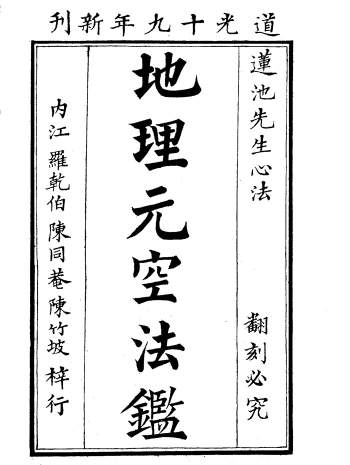 道光十九年新刊
蓮池先生心法
翻刻必究
地理元空法鑑
内江羅乾伯陳同菴陳竹坡梓行